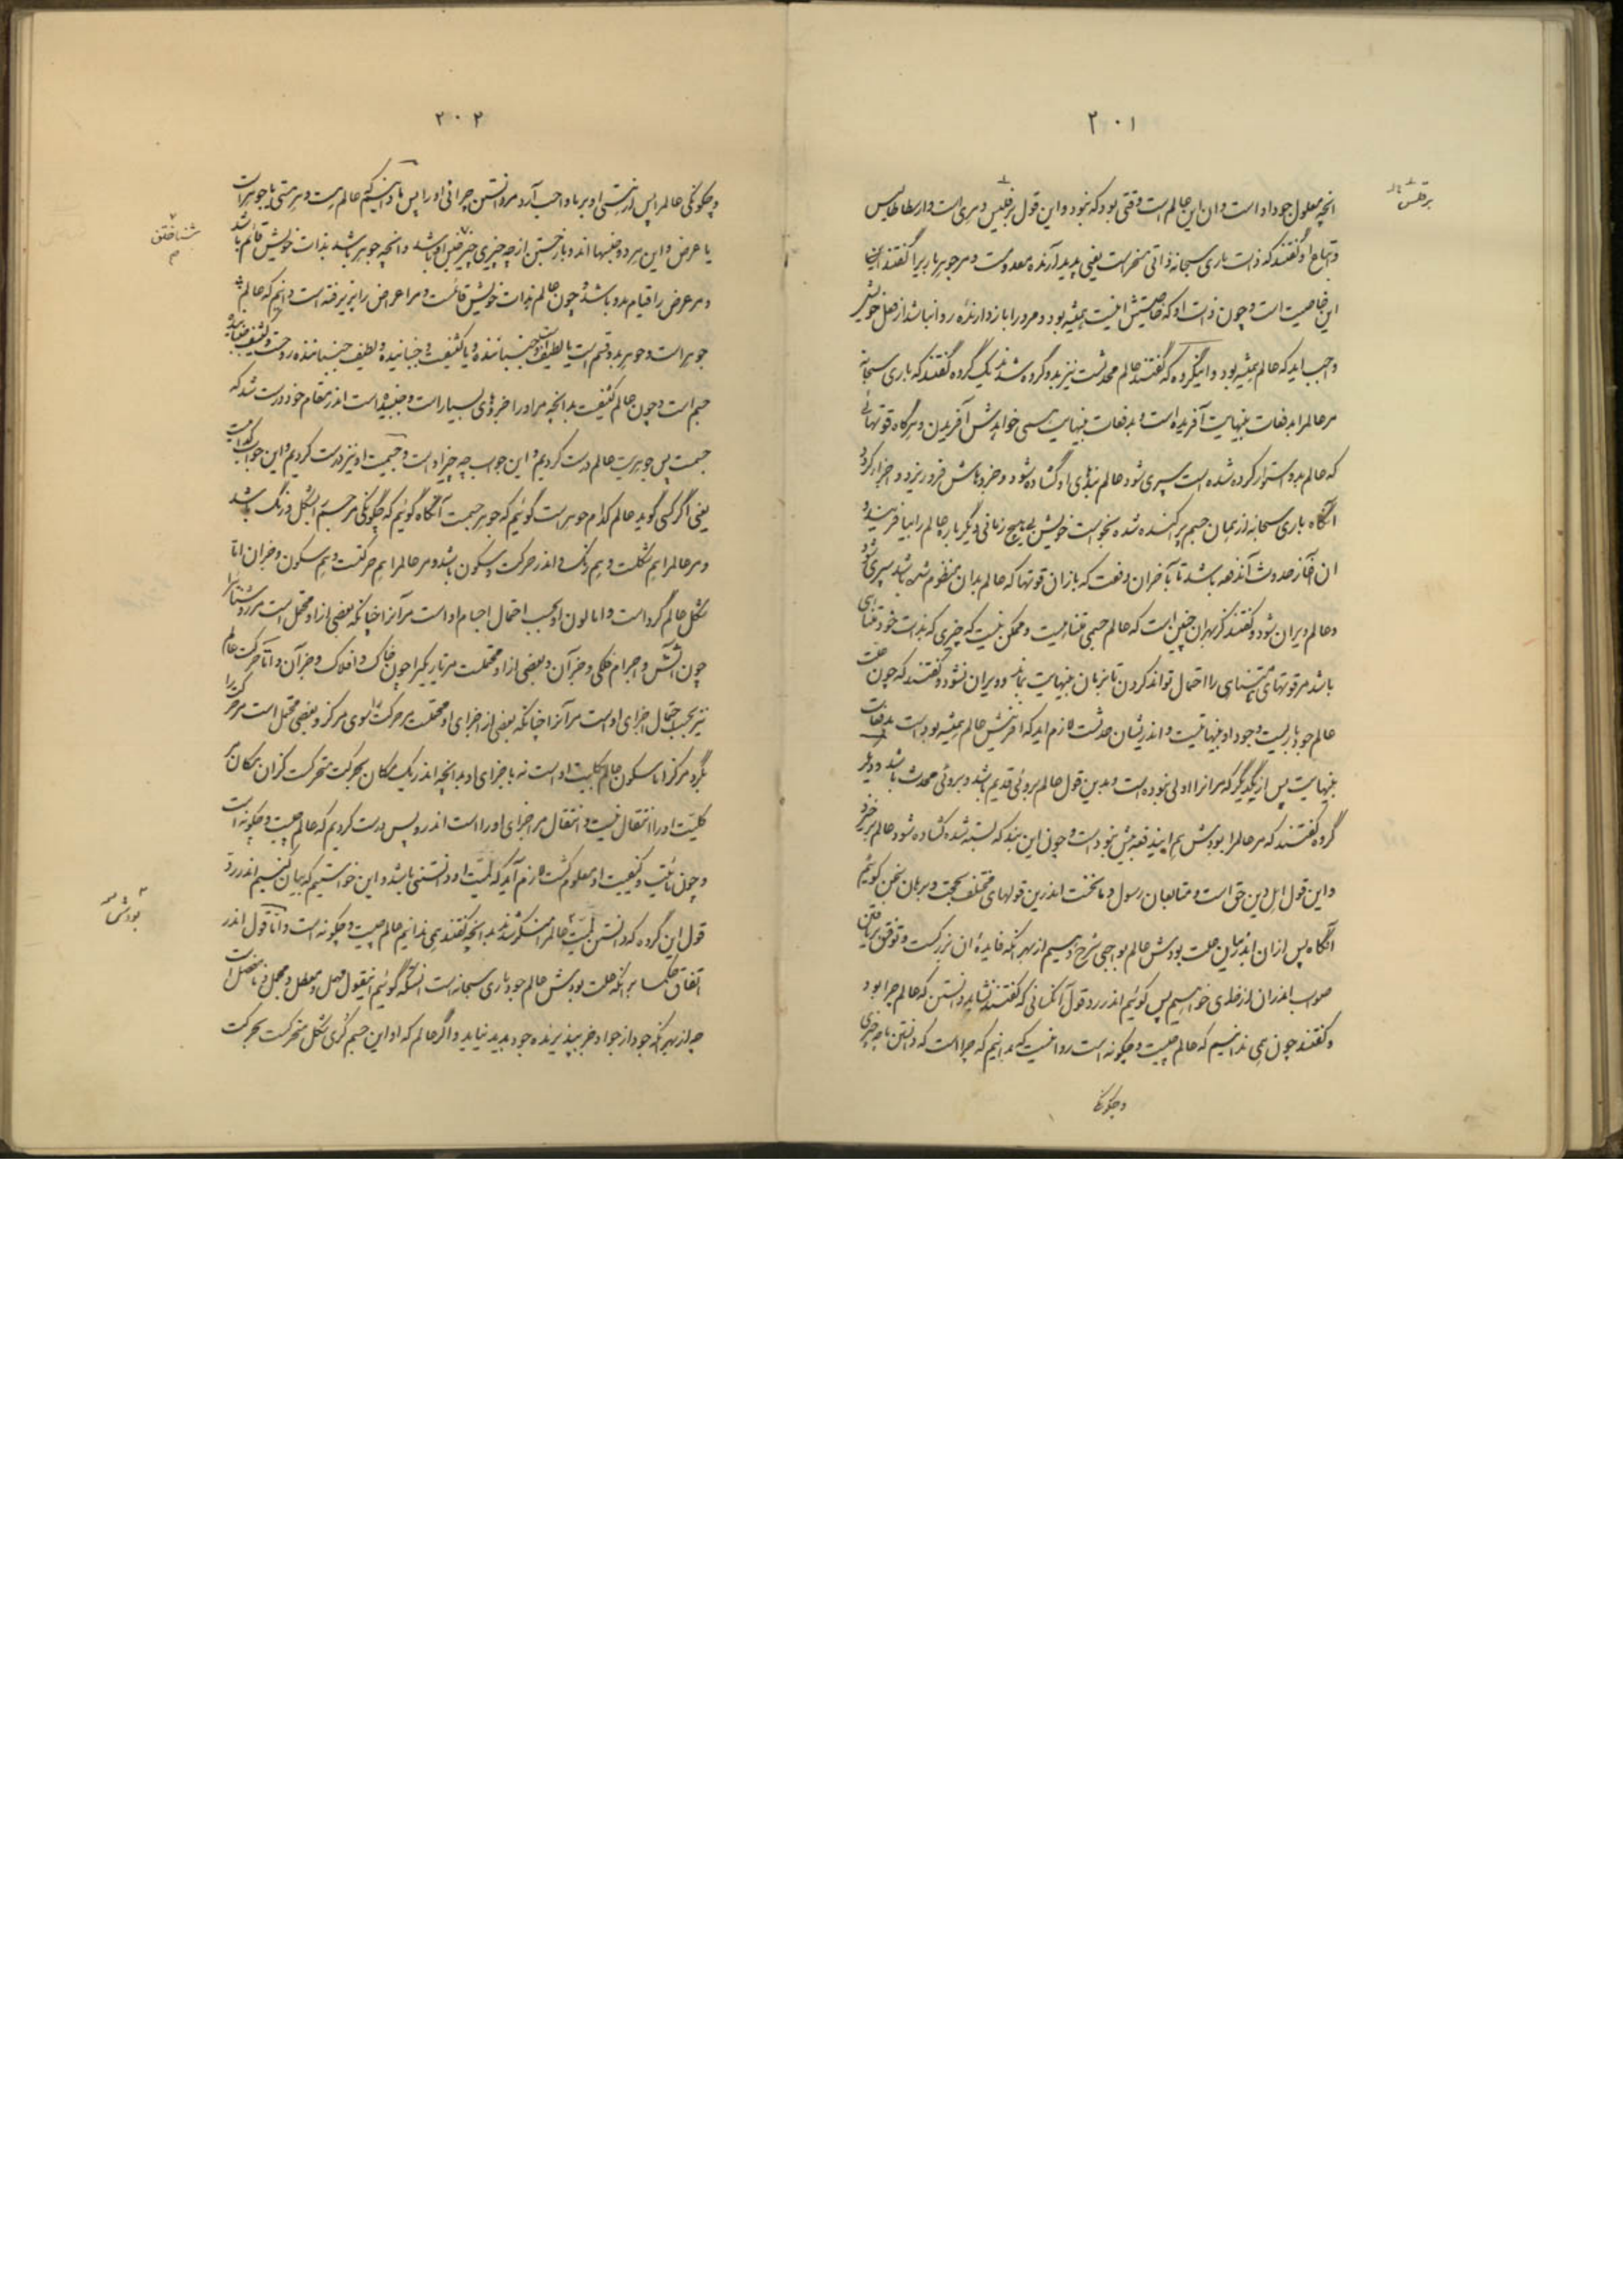 ۲۰۱
برقلس
انچه معلول جود او است و ان این عالم است وقتی بود که نبود و این قول برقلس دهری است و ارسطاطالیس
و اتباع او گفتند که ذات باری سبحانه ذاتی است یعنی پدید آرنده معدومست و مر جوهر باری را گفتند
این خاصیت است و چون ذات او که خاصیتش اینست همیشه بود و مرو را باز دارنده روا نباشد از فعل خویش
واجب اید که عالم همیشه بود و انگروه که گفتند عالم محدثست نیز بدو گروه شدند یک گروه گفتند که باری سبحانه
مر عالم را بدفعات بینهایت آفریده است و بدفعات بینهایت همی خواهدش آفریدن و هرگاه قوتهائی
که عالم بدو استوار کرده شده است سپری شود عالم بندهای او گشاده شود و جزوهاش فرو ریزد و
انگاه باری سبحانه از همان جسم پراکنده شده بخواست خویش بی هیچ زمانی دیگر باره عالم را بیافریند و
ان آغاز حدوث آندفعه باشد تا بآخر ان دفعت که باز ان قوتها که عالم بدان منظوم شده باشد سپری شود
و عالم ویران شود و گفتند کز بهر ان چنین است که عالم جسمی متناهیست و ممکن نیست که چیزی که بذات خود متناهی
باشد مر قوتهای نامتناهی را احتمال تواند کردن تا بزمان بینهایت بماند و ویران نشود و گفتند که چون علت
عالم جود باریست و جود او بینهایتست و اندر ایشان حدثست لازم اید که افرینش عالم همیشه بوده است بدفعات
بینهایت پس از یکدیگر که مر انرا اولی نبوده است و بدین قول عالم بروئی قدیم باشد و بروئی محدث باشد و دیگر
گروه گفتند که مر عالم را بودش هم ایندفعه بیش نبوده است و چون این بند که بسته شده گشاده شود عالم برخیزد
و این قول اهل دین حق است و متابعان رسول و ما نخست اندرین قولهای مختلف بحجت و برهان سخن گوئیم
انگاه پس از ان اندر بیان علت بودش عالم بواجبی شرح دهیم از بهر انکه فایده ان بزرگست و توفیق بر یافتن
صواب اندر ان از خدای خواهیم پس گوئیم اندر رد قول آنکسانی که گفتند نشاید دانستن که عالم چرا بود
و گفتند چون همی ندانیم که عالم چیست و چگونه است روا نیست که بدانیم که چرا است که دانستن
و چگونگی
۲۰۲
و چگونگی عالم را پس از هستی او بر ما واجب آرد مر دانستن چرائی او را پس ما دانیم که عالم هست و هر هستی یا جوهر است
شناختن
یا عرض و این هر دو جنسها اند و بازجستن از چه چیزی چیز جنس او باشد و انچه جوهر باشد بذات خویش قائم باشد
و مر عرض را قیام بدو باشد و چون عالم بذات خویش قائمست و مر اعراض را پذیرفته است دانیم که عالم
جوهر است و جوهر بدو قسم است یا لطیف است و جنباننده و یا کثیفست و جنبانیده و لطیف جنباننده روحست و کثیف
جسم است و چون عالم کثیفست بدانچه مر او را جزوهای بسیار است و جنبیده است اندر مقام خود درست شد که
جسمست پس جوهریت عالم درست کردیم و این جواب چه چیز او است و جسمیت او نیز درست کردیم و این جواب
یعنی اگر کسی گوید عالم کدام جوهر است گوئیم که جوهر جسمست آنگاه گوئیم که چگونگی مر جسم را بشکل و رنگ باشد
و مر عالم را هم شکلست و هم رنگ و اندر حرکت و سکون باشد و مر عالم را هم حرکتست و هم سکون و جز ان اما
شکل عالم گرد است و اما لون او بحسب احتمال اجسام او است مر آنرا چنانکه بعضی از او محتمل است مر روشنائی را
چون آتش و اجرام فلکی و جز آن و بعضی از او محتملست مر تاریکی را چون خاک و افلاک و جز آن و اما حرکت عالم
نیز بحسب احتمال اجزای او است مر آنرا چنانکه بعضی از اجزای او محتملست مر حرکت را سوی مرکز و بعضی محتمل است مر حرکت را
بگرد مرکز اما سکون عالم بکلیت او است نه باجزای او بدانچه اندر یک مکان بحرکت متحرکست کز ان مکان مر
کلیت او را انتقال نیست و انتقال مر اجزای او را است اندر و پس درست کردیم که عالم چیست و چگونه است
و چون مائیت و کیفیت او معلوم گشت لازم آید که لمیت او دانستنی باشد و این خواستیم که بیان کنیم اندر رد
بودش
قول این گروه که دانستن لمیت عالم را منکر شدند بدانچه گفتند همی ندانیم عالم چیست و چگونه است و اما قول اندر
اتفاق حکما بر انکه علت بودش عالم جود باری سبحانه است انستکه گوئیم اینقول مهمل و معطل و مجمل و نامفصل است
چه از بهر انکه جود از جواد جز بپذیرنده جود پدید نیاید و اگر عالم که او این جسم کری شکل متحرکست بحرکت